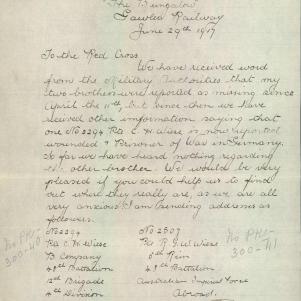 "The Bungalow"
Gawler Railway
June 29th 1917
To the Red Cross
We have received word
from the Military Authorities that my
two brothers were reported as missing since
April the 11th, but since then we have
received other information saying that
one No 2294 Pte C. H. Wiese is now reported
wounded & Prisoner of War in Germany.
So far we have heard nothing regarding
other brother. We would be very
pleased if you could help us to find
out where they really are, as we are all
very anxious. I am sending address as
follows.
No 2294
Pte C. H. Wiese
B Company
48th Battalion
12th Brigade
4th Division
No 2507
Pte R. G. W. Wiese
6th Rein
48th Battalion
Australian Imperial Force
Abroad.